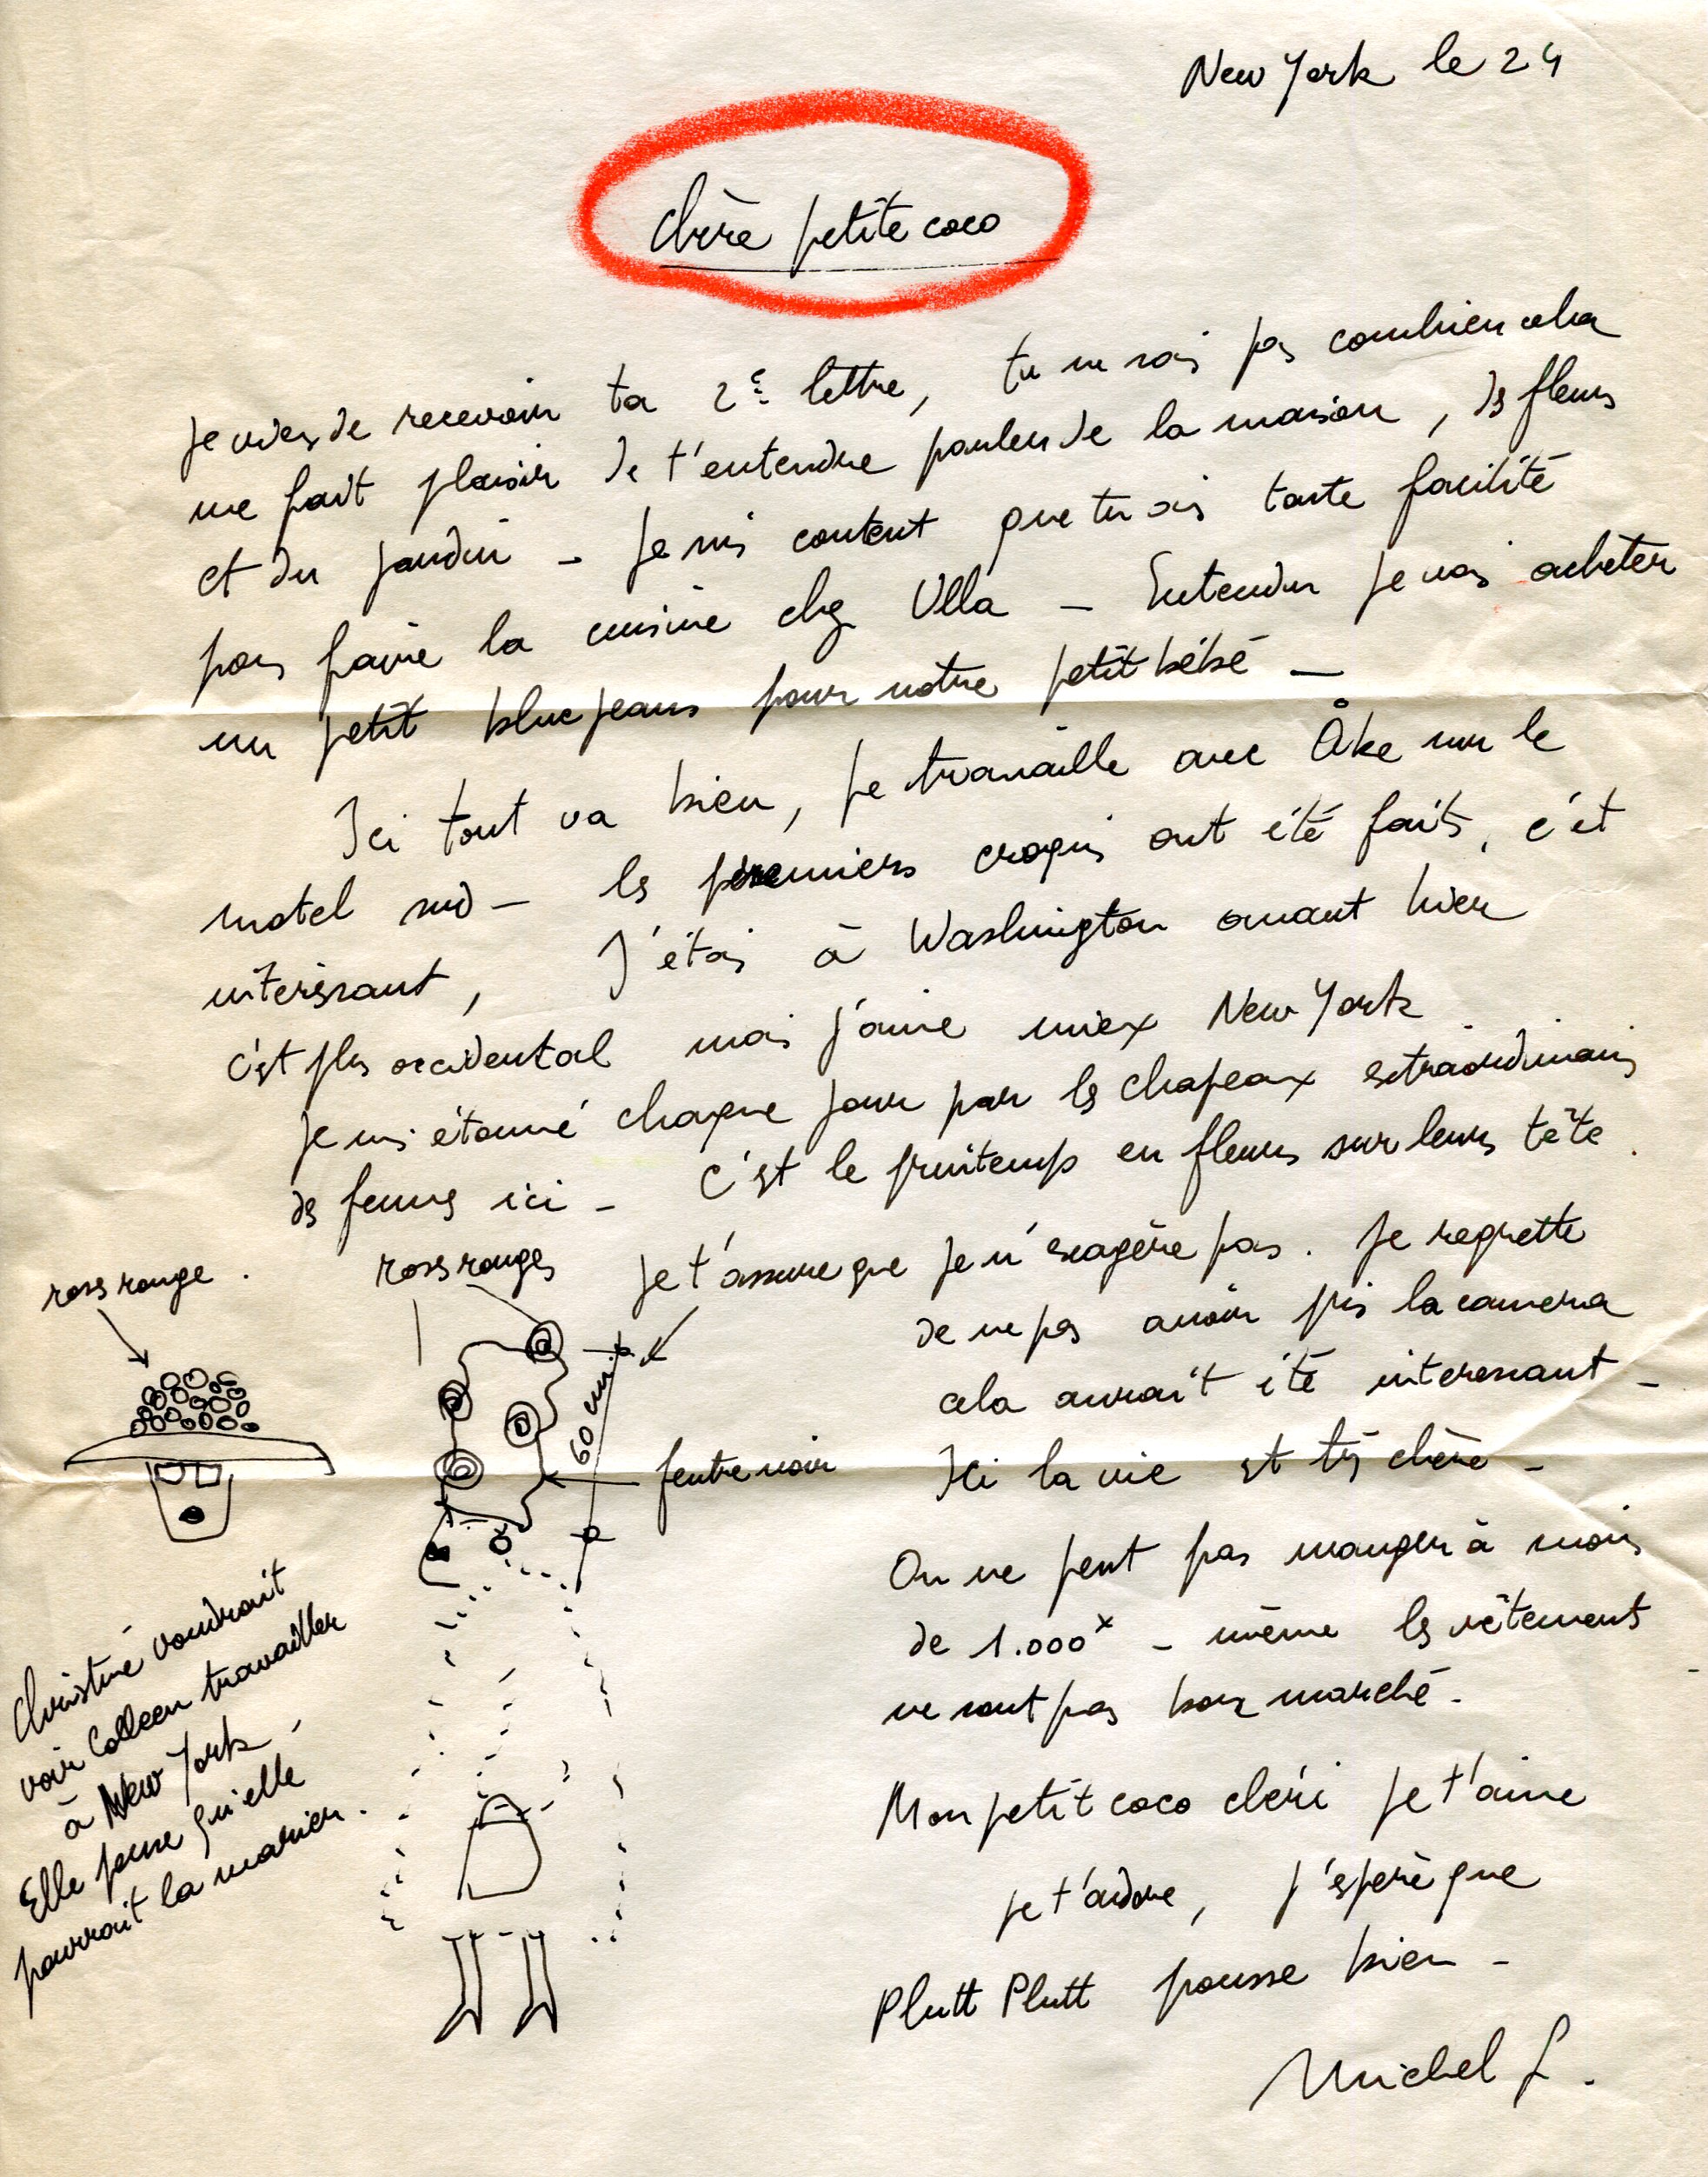 New York le 24
Chère petite coco
Je viens de recevoir ta 2e lettre, tu ne sais pas combien cela
me fait plaisir de t'entendre parler de la maison, des fleurs
et du jardin - Je suis content que tu ais toute facilité
pour faire la cuisine chez Ulla - Entendu je vais acheter
un petit blue jeans pour notre petit bébé -
Ici tout va bien, je travaille avec Åke sur le
motel sud - les premiers croquis ont été faits, c'est
intéressant, J'étais à Washington avant hier
c'est plus occidental mais j'aime mieux New York
Je suis étonné chaque jour par les chapeaux extraordinaires
des femmes ici - C'est le printemps en fleurs sur leurs tête.
Je t'assure que je n'exagère pas. Je regrette
de ne pas avoir pris la camera
cela aurait été interessant -
Ici la vie est très chère -
On ne peut pas manger à moins
de 1.000x - même les vêtements
ne sont pas bon marché -
Mon petit coco chéri je t'aime
je t'adore, j'espère que
Plutt Plutt pousse bien -
Michel L.
roses rouge.
roses rouges
60 cm
feutre noir
Christine voudrait
voir Colleen travailler
à New York -
Elle pense qu'elle
pourrait la marier.